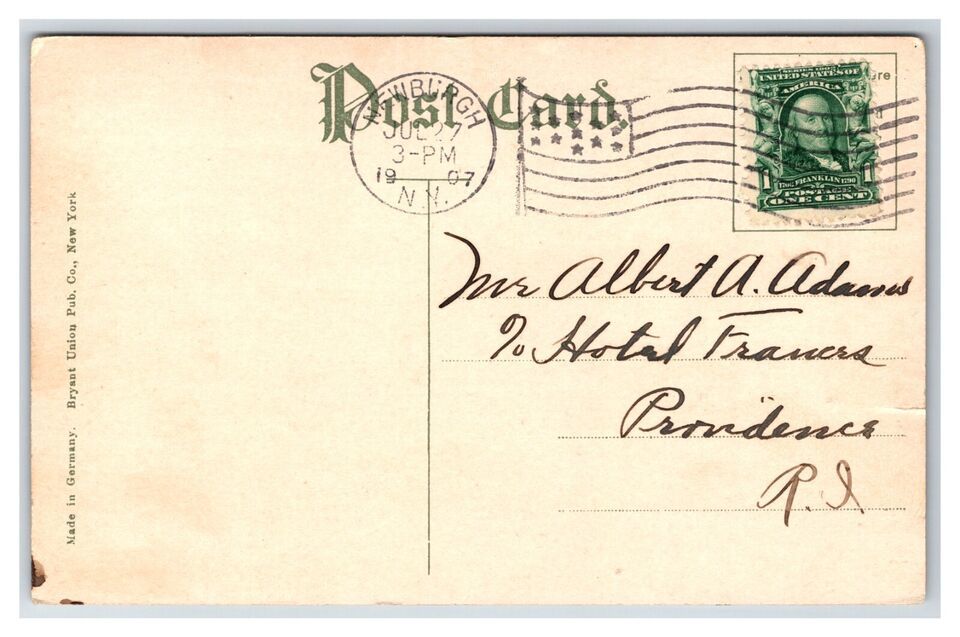 Post Card.
NEWBURGH
JUL 27
3-PM
1907
N.Y.
SERIES 1902
UNITED STATES OF
AMERICA
1706 FRANKLIN 1790
1 POSTAGE 1
ONE CENT
Mr Albert A. Adams
c/o Hotel Frances
Providence
R.I
Made in Germany. Bryant Union Pub. Co., New York